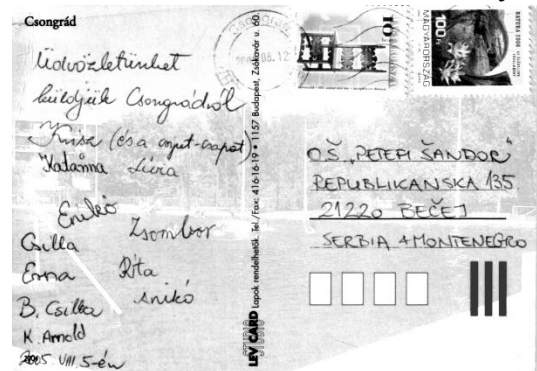 Csongrád
Üdvözletünket
küldjük Csongrádról
Krisz (és a anyut-csapat)
Katarina Lívia
Enikő
Zsombor
Csilla
Emma Rita
Anikó
B. Csilla
K. Arnold
2005. VIII. 5-én
LEV CARD STUDIO Lapok rendelhetők. Tel./Fax: 416-16-19 • 1157 Budapest, Zsókavár u. 60.
MAGYARORSZÁG
100Ft
OŠ „PETEFI ŠANDOR"
REPUBLIKANSKA 135.
21220 BEČEJ
SERBIA +MONTENEGRO